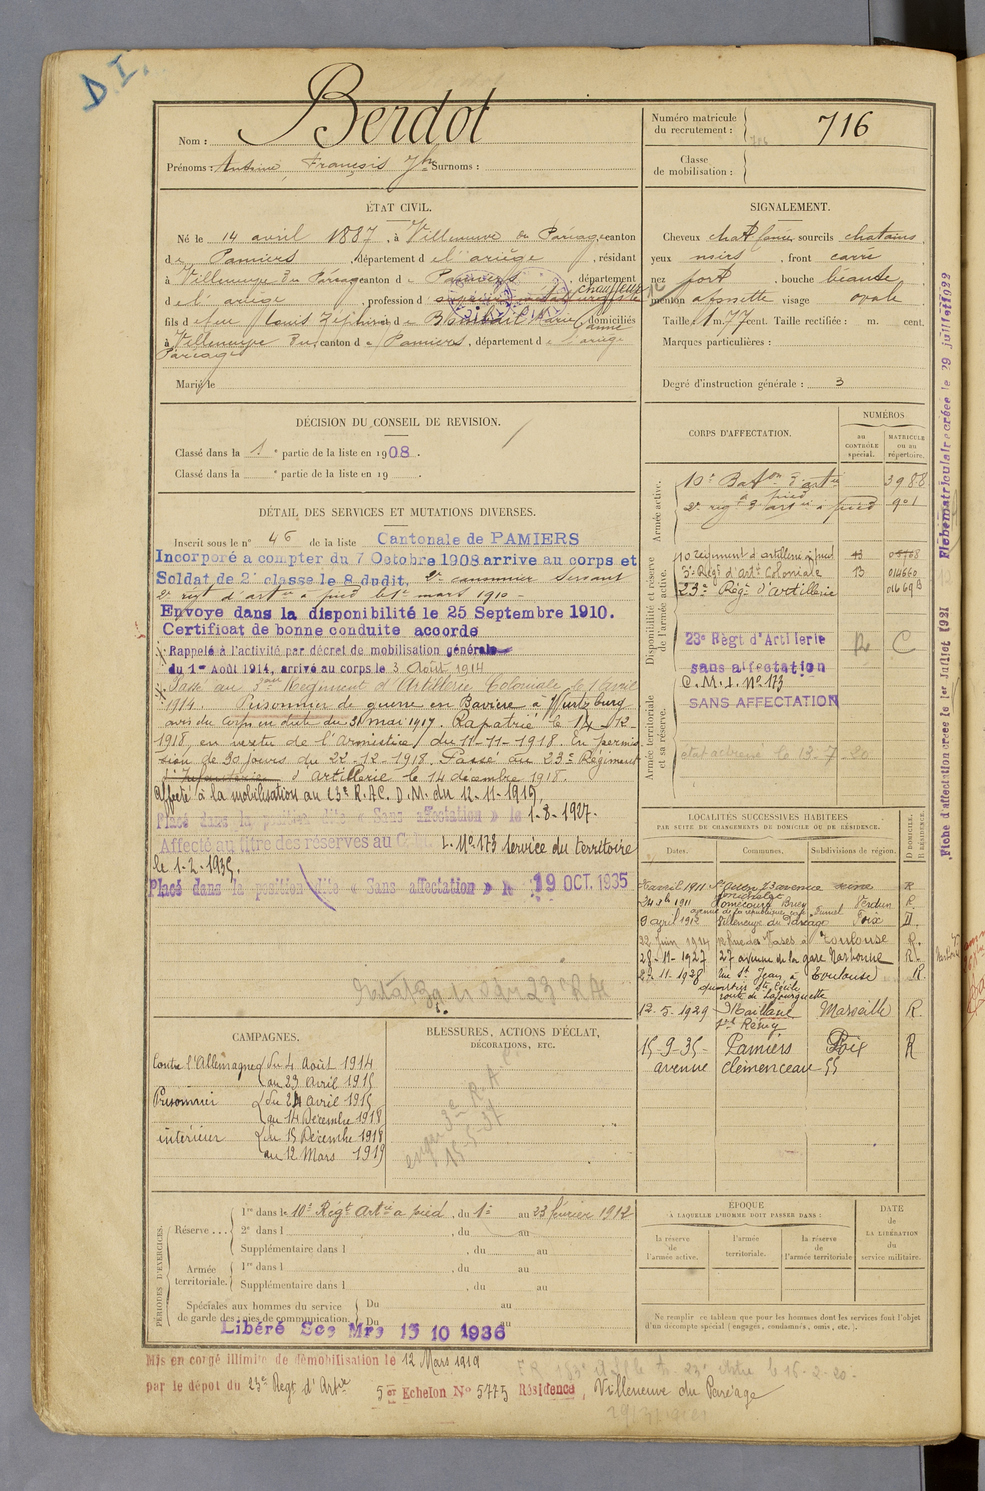 D I.
Nom : Berdot
Prénoms : Antoine François Jh Surnoms :
Numéro matricule
du recrutement : 716
Classe
de mobilisation :
ÉTAT CIVIL.
Né le 14 avril 1887, à Villeneuve du Paréage, canton
de Pamiers, département de l'ariège, résidant
à Villeneuve du Paréage canton de Pamiers département
de l'ariège, profession d chauffeur
fils de feu Louis Zephirin et de Marie Anne domiciliés
à Villeneuve du canton de Pamiers, département de l'ariège
Paréage
Marié le
SIGNALEMENT.
Cheveux chat foncé, sourcils chatains
yeux noirs, front carré
nez fort, bouche béante
menton a fossette visage ovale
Taille : 1 m. 77 cent. Taille rectifiée : m. cent.
Marques particulières :
Degré d'instruction générale : 3
DÉCISION DU CONSEIL DE REVISION.
Classé dans la 1e partie de la liste en 1908.
Classé dans la e partie de la liste en 19 .
DÉTAIL DES SERVICES ET MUTATIONS DIVERSES.
Inscrit sous le n° 46 de la liste Cantonale de PAMIERS
Incorporé a compter du 7 Octobre 1908 arrive au corps et
Soldat de 2e classe le 8 dudit, 2e canonnier servant
2e régt d'artie à pied le 1er mars 1910 -
Envoye dans la disponibilité le 25 Septembre 1910.
Certificat de bonne conduite acoorde
Rappelé à l'activité par décret de mobilisation générale
du 1er Août 1914, arrivé au corps le 3 Août 1914
Passé au 3eme Régiment d'Artillerie Coloniale le 1 Avril
1914. Prisonnier de guerre en Bavière à Wurtzburg
avis du Corps en date du 31 mai 1917. Rapatrié le 14-12-
1918, en vertu de l'Armistice du 11-11-1918. En permis-
sion de 30 jours du 22-12-1918. Passé au 23e Régiment
d'Infanterie d'Artillerie le 14 décembre 1918.
affecté à la mobilisation au 13e R.A.C. D.M. du 12-11-1919.
Placé dans la position dite « Sans affectation » le 1-8-1927.
Affecté au titre des réserves au L. No 173 service du territoire
le 1-2-1935.
Placé dans la position dite « Sans affectation » le 19 OCT. 1935
CORPS D'AFFECTATION.
NUMÉROS
au
CONTRÔLE
spécial.
MATRICULE
ou au
répertoire.
Armée active.
10e Baton d'artie à pied 3988
2e régt d'artie à pied 901
Disponibilité et réserve
de l'armée active.
10 régiment d'artillerie à pied 13
3e Régt d'Art. Coloniale 13 014660
23e Régt d'artillerie
23e Régt d'Artillerie R C
sans affectation
C.M.I. No 173
SANS AFFECTATION
Armée territoriale
et sa réserve.
état adressé le 13-7-20
LOCALITÉS SUCCESSIVES HABITÉES
PAR SUITE DE CHANGEMENTS DE DOMICILE OU DE RÉSIDENCE.
Dates. Communes. Subdivisions de région. D DOMICILE. R RÉSIDENCE.
avril 1911 St Ouen 23 avenue seine R
1911 Homécourt Briey Verdun R.
9 avril 1912 Villeneuve du Paréage Foix D.
22 Juin 1914 Toulouse R.
28-11-1927 27 avenue de la gare Narbonne R.
2-11-1928 Rue St Jean à Toulouse R.
quartier Ste Cécile
route de Lafourguette
12-5-1929 Maillane Marseille R.
15-9-35- Pamiers Foix R
avenue Clémenceau 55
CAMPAGNES.
Contre l'Allemagne du 4 Août 1914
au 23 Avril 1915
Prisonnier du 24 Avril 1915
au 14 Décembre 1918
intérieur du 15 Décembre 1918
au 12 Mars 1919
BLESSURES, ACTIONS D'ÉCLAT,
DÉCORATIONS, ETC.
PÉRIODES D'EXERCICES.
Réserve ... 1re dans le 10e Régt Artie à pied, du 1er au 23 février 1912
2e dans l , du au
Supplémentaire dans l , du au
Armée
territoriale. 1re dans l , du au
Supplémentaire dans l , du au
Spéciales aux hommes du service
de garde des voies de communication. Du au
Du
Libéré Sce Mre 15 10 1936
ÉPOQUE
A LAQUELLE L'HOMME DOIT PASSER DANS :
la réserve
de
l'armée active.
l'armée
territoriale.
la réserve
de
l'armée territoriale
DATE
de
LA LIBÉRATION
du
service militaire.
Ne remplir ce tableau que pour les hommes dont les services font l'objet
d'un décompte spécial (engagés, condamnés, omis, etc.).
Mis en congé illimité de démobilisation le 12 Mars 1919
par le dépot du 23e Regt d'Artie 5er Echelon No 5775 Résidence, Villeneuve du Paréage
Fiche d'affectation créée le 1er Juillet 1931 Fiche matriculaire créée le 29 juillet 1922